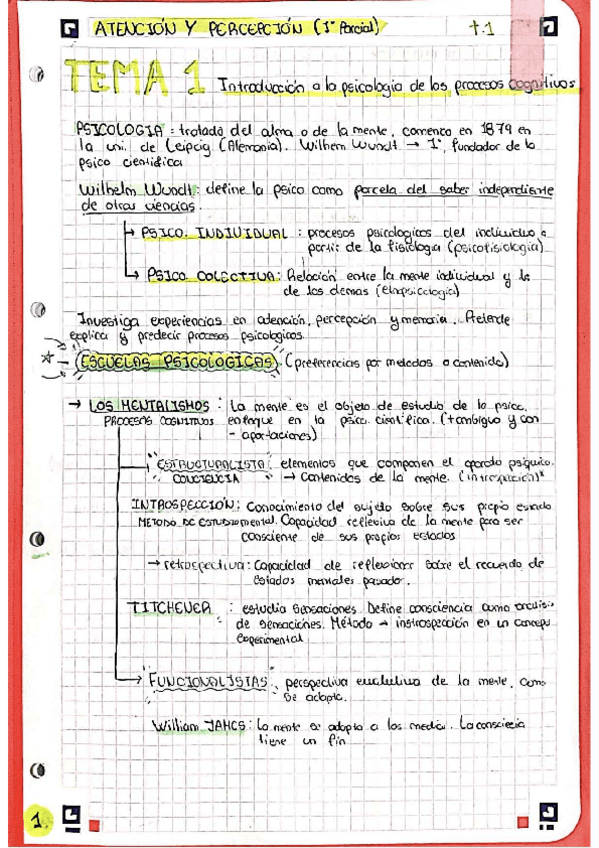 ATENCIÓN Y PERCEPCIÓN (1º Parcial) t.1
TEMA 1 Introducción a la psicología de los procesos cognitivos
PSICOLOGIA : tratado del alma o de la mente, comenza en 1879 en
la uni. de Leipcig (Alemania). Wilhem Wundt → 1º, fundador de la
psico cientifica
Wilhelm Wundt: define la psico como parcela del saber independiente
de otras ciencias.
PSICO. INDIVIDUAL : procesos psicologicos del individuo a
partir de la fisiologia (psicofisiologia)
PSICO COLECTIVA: Relación entre la mente individual y la
de los demas (Etnopsicologia)
Investiga experiencias en atención, percepción y memoria. Pretende
explica y predecir procesos psicologicos.
ESCUELAS PSICOLOGICAS. (preferencias por metodos o contenido)
→ LOS MENTALISMOS : La mente es el objeto de estudio de la psico.
PROCESOS COGNITIVOS enfoque en la psico. cientifica. (+ambiguo y con
- aportaciones)
ESTRUCTURALISTA: elementos que componen el aparato psiquico.
CONCIENCIA → Contenidos de la mente. (introspección)*
INTROSPECCIÓN: Conocimiento del sujeto sobre sus propio estado
METODO DE ESTUDIO mental. Capacidad reflexiva de la mente para ser
consciente de sus propios estados
→ retrospectiva: Capacidad de reflexionar sobre el recuerdo de
estados mentales pasados.
TITCHENER : estudia sensaciones. Define consciencia como analisis
de sensaciones. Método → instrospección en un
experimental
FUNCIONALISTAS, perspectiva evolutiva de la mente, como
se adapta.
William JAMES: La mente se adapta a los medios. La consciecia
tiene un fin
1.